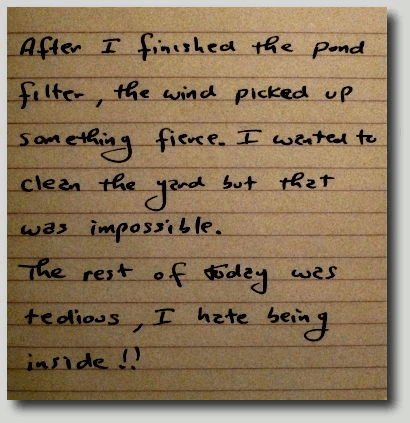 After I finished the pond
filter, the wind picked up
something fierce. I wanted to
clean the yard but that
was impossible.
The rest of today was
tedious, I hate being
inside!!